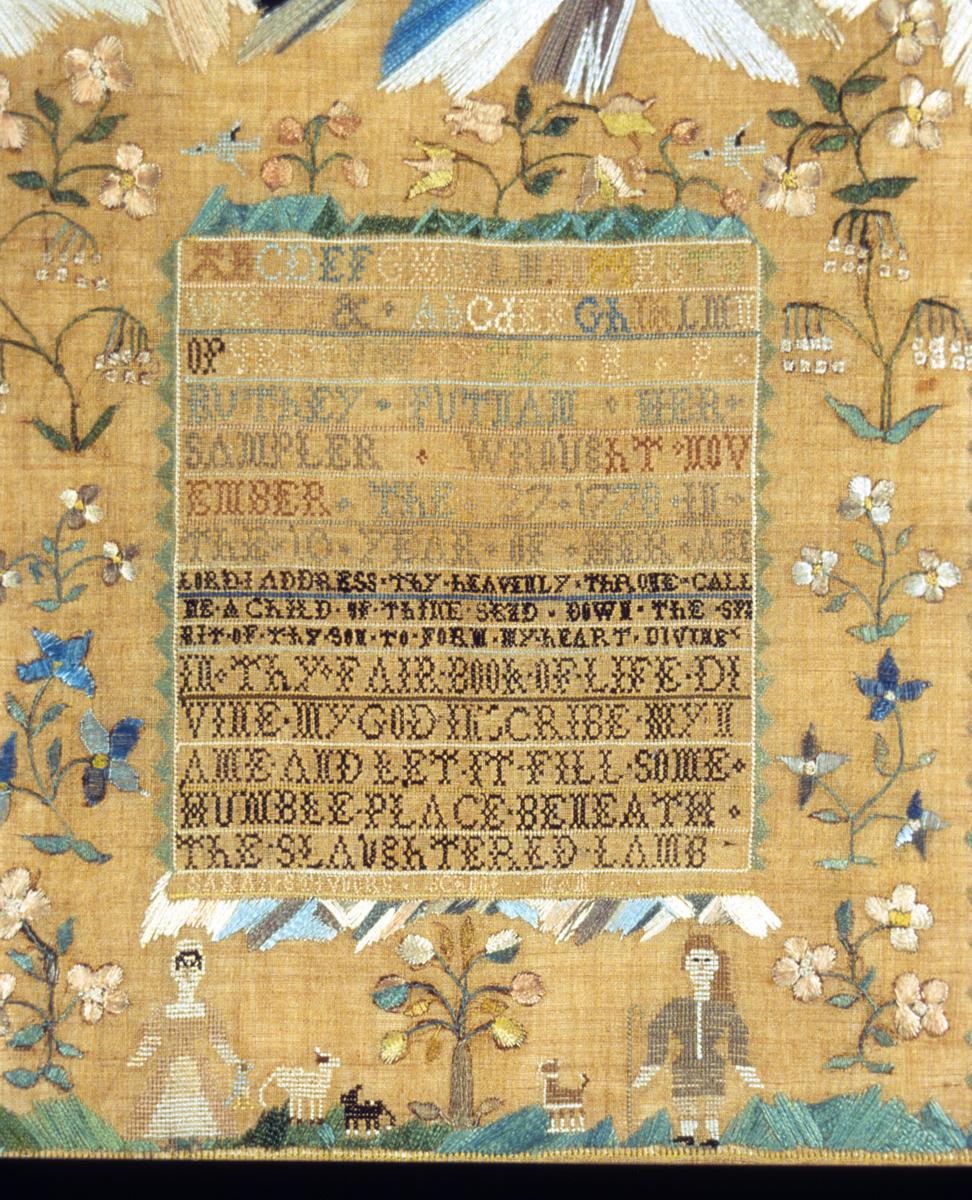 ABCDEFGHIKLMNOPQRSTV
WXYZ & · AbCdEFGhIKLMN
OP
RUThEY · PUTNAM · HER
SAMPLER · WROUGhT · NOV
EMBER · THE · 27 · 1778 · IN
THE · 10 · YEAR · OF · HER · AG
LORD · I ADDRESS · ThY · hEAVENLY · ThRONE · CALL
ME · A ChILD · OF · ThINE SEND · DOWN · THE · SPI
RIT · OF · ThY · SON · TO · FORM · MY · hEART · DIVINE
IN · ThY · FAIR · BOOK · OF · LIFE · DI
VINE · MY GOD INSCRIBE · MY N
AME AND LET · IT · FILL · SOME ·
HUMBLE · PLACE · BENEATH ·
ThE · SLAUGhTERED · LAMB